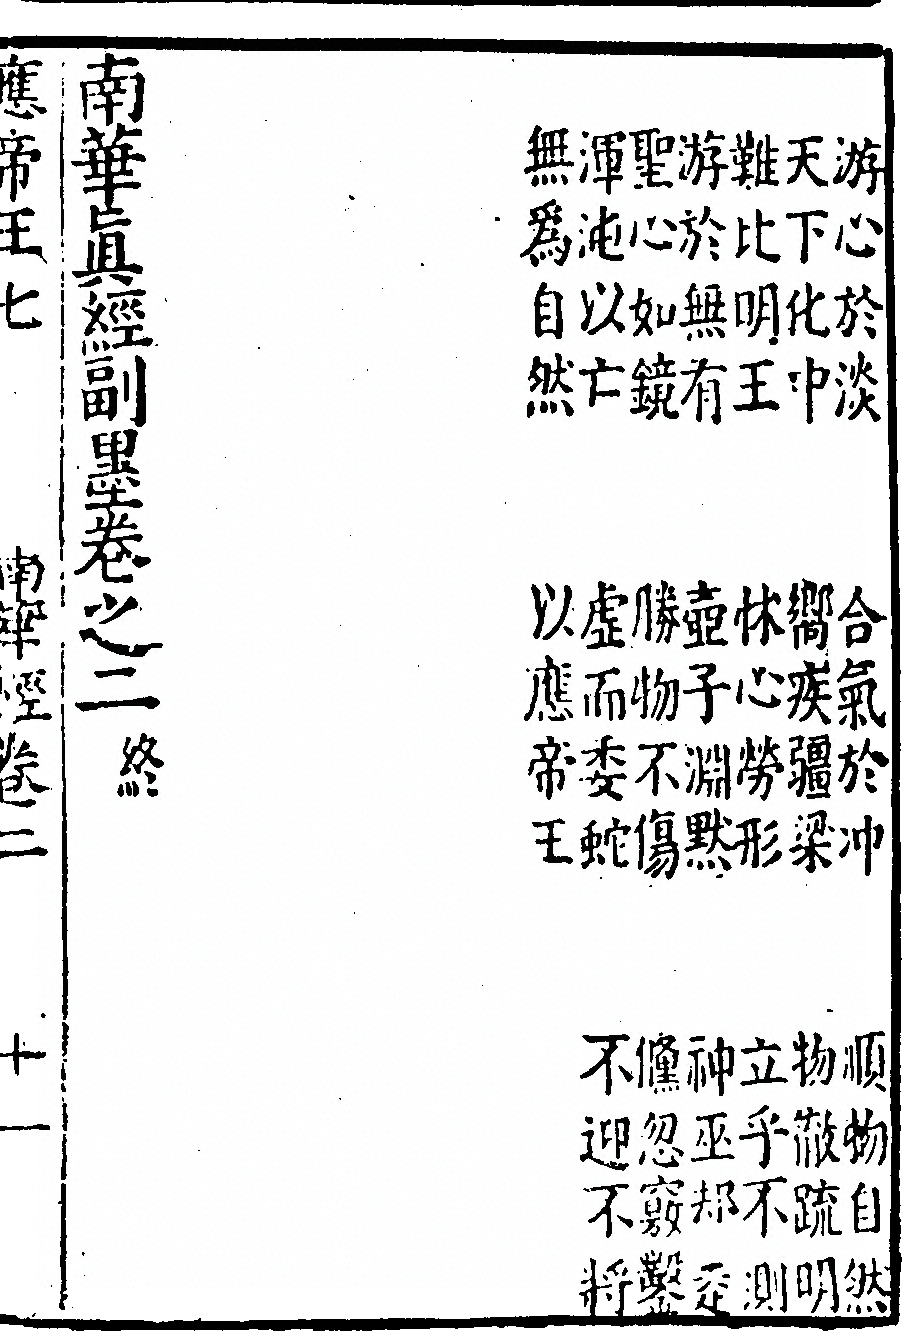 游心於淡　合氣於冲　順物自然
天下化中　嚮疾疆梁　物徹疏明
難比明王　怵心勞形　立乎不測
游於無有　壺子淵默　神巫却走
聖心如鏡　勝物不傷　儵忽竅鑿
渾沌以亡　虛而委蛇　不迎不將
無爲自然　以應帝王
南華眞經副墨卷之二　終
應帝王七　南華經卷二　十一